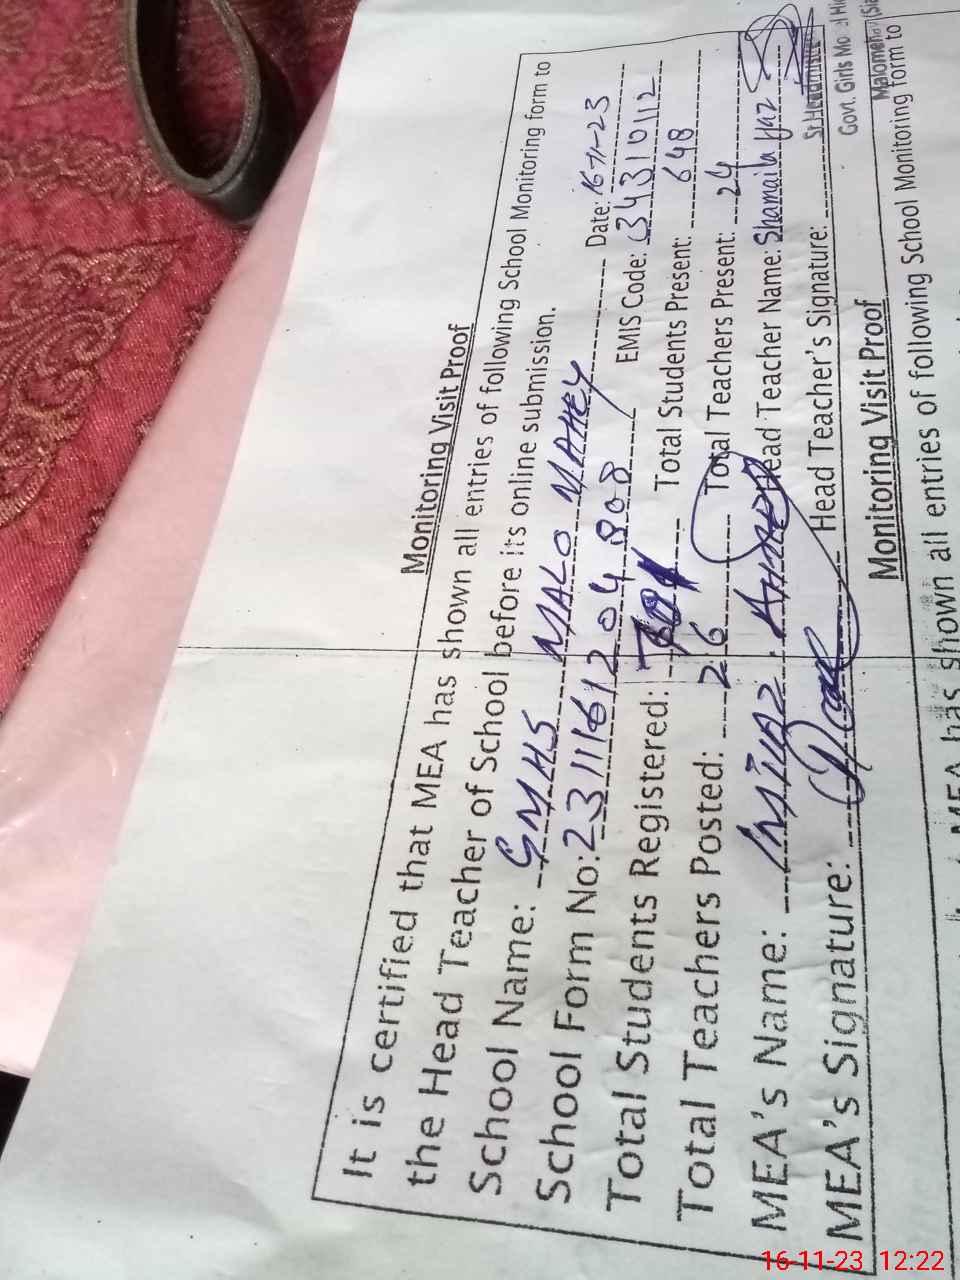 Monitoring Visit Proof
It is certified that MEA has shown all entries of following School Monitoring form to
the Head Teacher of School before its online submission.
School Name: GMHS MALO MAHEY Date: 16-11-23
School Form No: 23111612 04 808 EMIS Code: 34310112
Total Students Registered: Total Students Present: 648
Total Teachers Posted: 26 Total Teachers Present: 24
MEA's Name: Imtiaz Ahmed Head Teacher Name: Shamaila
MEA's Signature: Head Teacher's Signature:
Sr. Headmistress
Govt. Girls Model
Monitoring Visit Proof
MEA has shown all entries of following School Monitoring form to
16-11-23 12:22